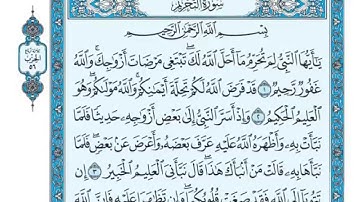 سُورَةُ التَّحْرِيمِ
بِسْمِ اللَّهِ الرَّحْمَٰنِ الرَّحِيمِ
يَٰٓأَيُّهَا ٱلنَّبِىُّ لِمَ تُحَرِّمُ مَآ أَحَلَّ ٱللَّهُ لَكَ تَبْتَغِى مَرْضَاتَ أَزْوَٰجِكَ وَٱللَّهُ
غَفُورٌ رَّحِيمٌ ١ قَدْ فَرَضَ ٱللَّهُ لَكُمْ تَحِلَّةَ أَيْمَٰنِكُمْ وَٱللَّهُ مَوْلَىٰكُمْ وَهُوَ
ٱلْعَلِيمُ ٱلْحَكِيمُ ٢ وَإِذْ أَسَرَّ ٱلنَّبِىُّ إِلَىٰ بَعْضِ أَزْوَٰجِهِۦ حَدِيثًا فَلَمَّا
نَبَّأَتْ بِهِۦ وَأَظْهَرَهُ ٱللَّهُ عَلَيْهِ عَرَّفَ بَعْضَهُۥ وَأَعْرَضَ عَنۢ بَعْضٍ فَلَمَّا
نَبَّأَهَا بِهِۦ قَالَتْ مَنْ أَنۢبَأَكَ هَٰذَا قَالَ نَبَّأَنِىَ ٱلْعَلِيمُ ٱلْخَبِيرُ ٣ إِن
تَتُوبَآ إِلَى ٱللَّهِ فَقَدْ صَغَتْ قُلُوبُكُمَا وَإِن تَظَٰهَرَا عَلَيْهِ فَإِنَّ ٱللَّهَ
الحزب
٥٦